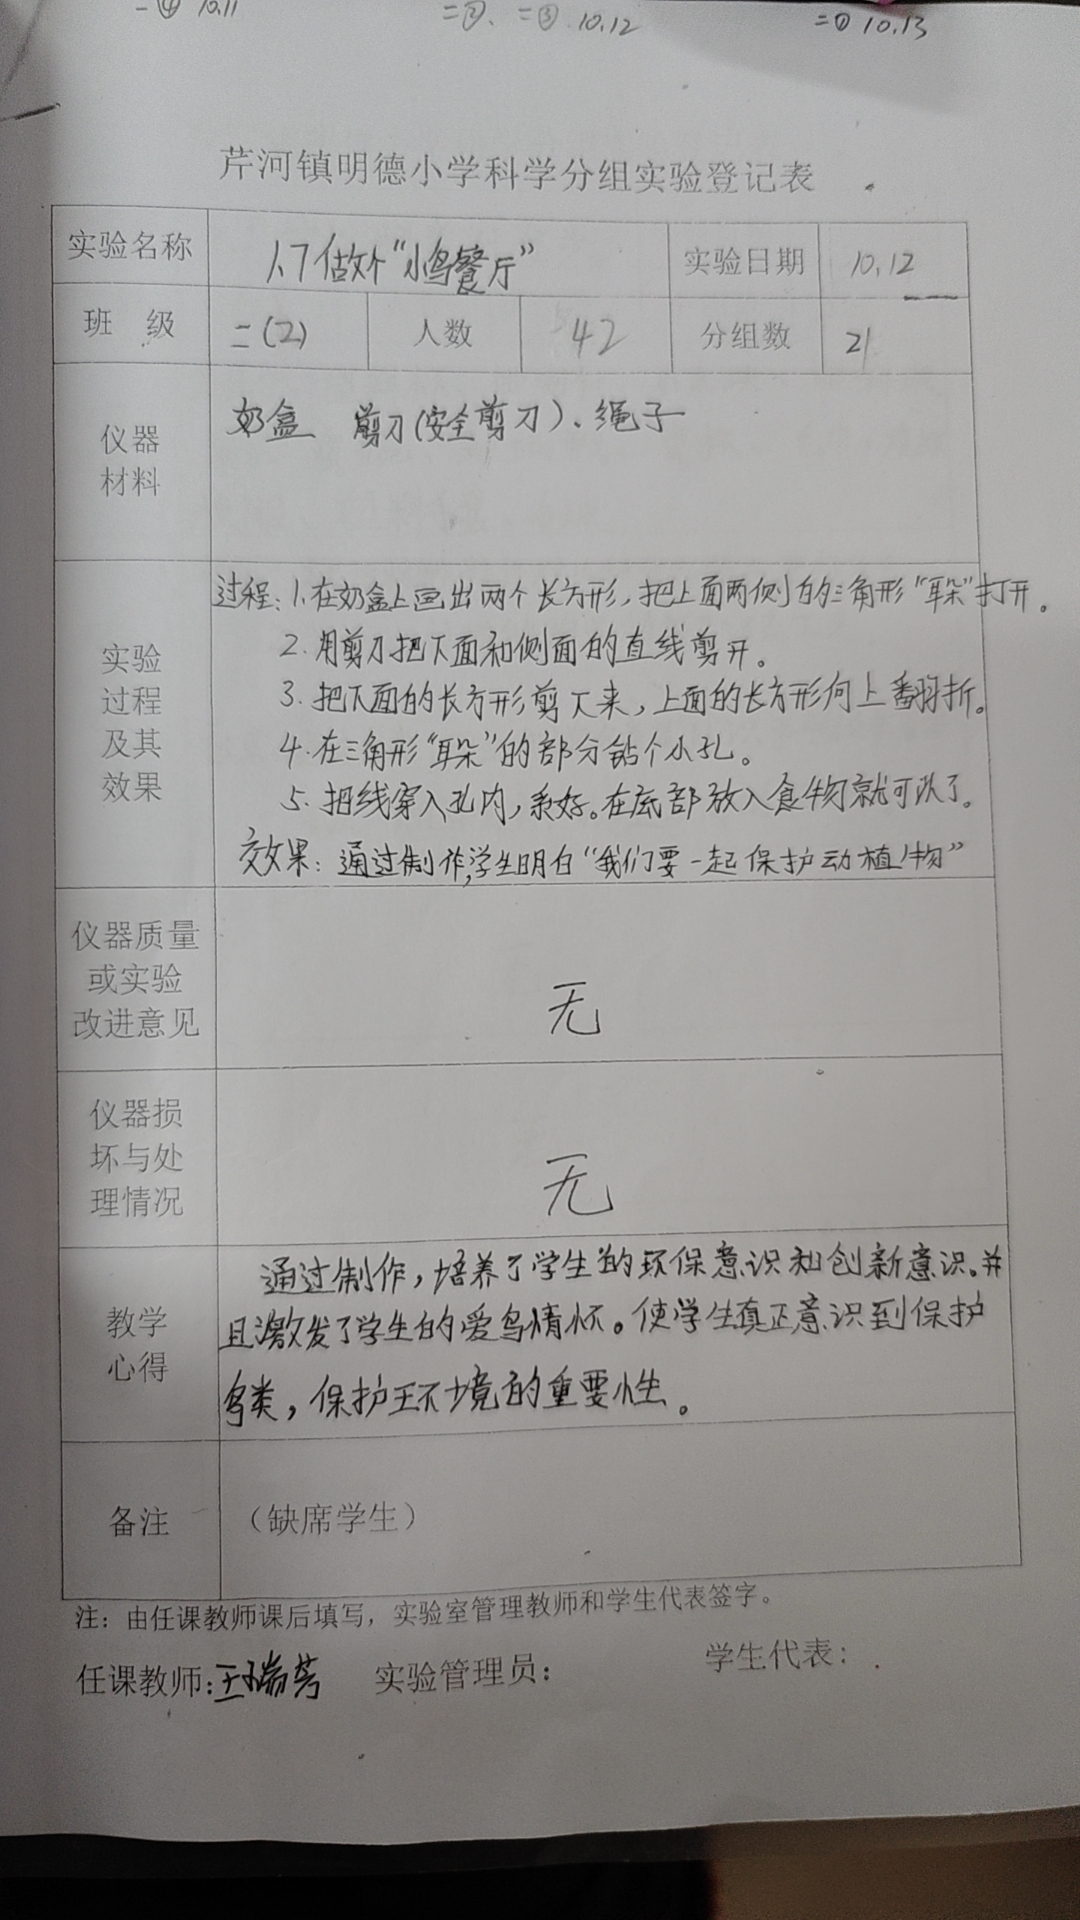 一④ 10.11 二②、二③ 10.12 二① 10.13
芹河镇明德小学科学分组实验登记表
实验名称 1.7做个“小鸟餐厅” 实验日期 10.12
班 级 二(2) 人数 42 分组数 21
仪器
材料
奶盒 剪刀(安全剪刀)、绳子
实验
过程
及其
效果
过程:1.在奶盒上画出两个长方形,把上面两侧的三角形“耳朵”打开。
2.用剪刀把下面和侧面的直线剪开。
3.把下面的长方形剪下来,上面的长方形向上翻折。
4.在三角形“耳朵”的部分钻个小孔。
5.把线穿入孔内,系好。在底部放入食物就可以了。
效果:通过制作,学生明白“我们要一起保护动植物”
仪器质量
或实验
改进意见
无
仪器损
坏与处
理情况
无
教学
心得
通过制作,培养了学生的环保意识和创新意识。并
且激发了学生的爱鸟情怀。使学生真正意识到保护
鸟类,保护环境的重要性。
备注 （缺席学生）
注：由任课教师课后填写，实验室管理教师和学生代表签字。
任课教师:王瑞芳 实验管理员: 学生代表: